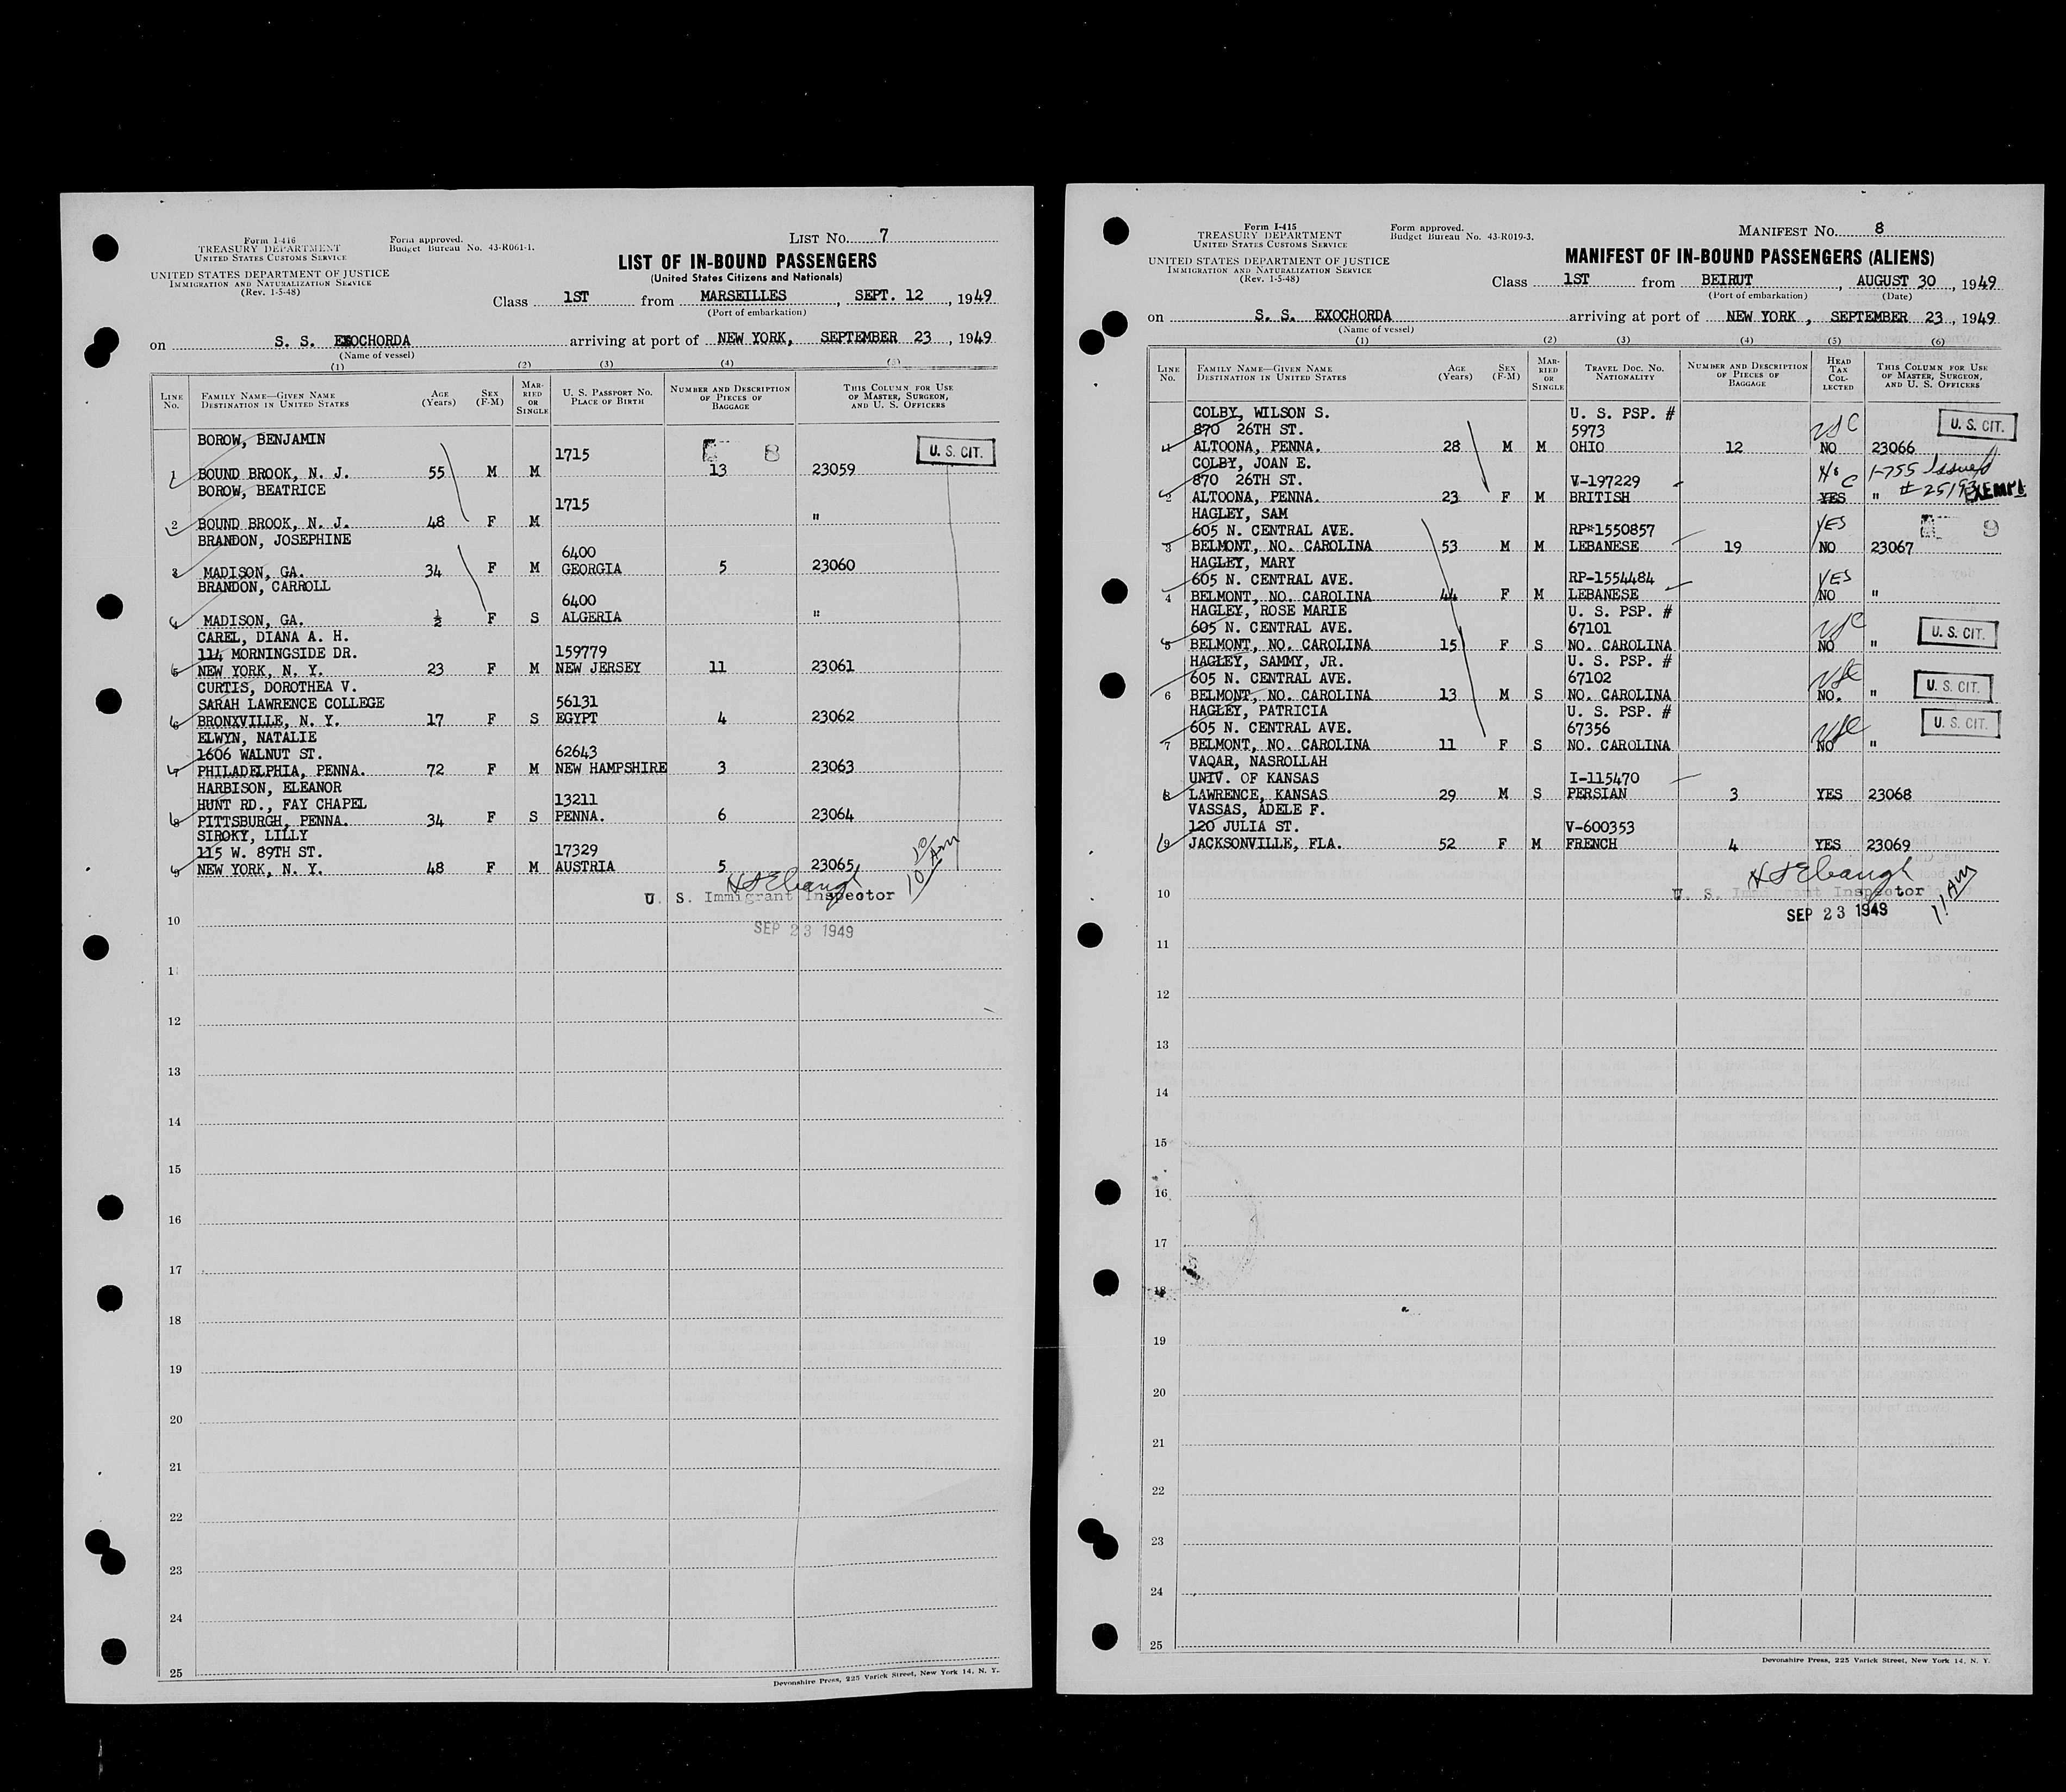 Form I-416
TREASURY DEPARTMENT
UNITED STATES CUSTOMS SERVICE
Form approved.
Budget Bureau No. 43-R061-1.
LIST No. 7
UNITED STATES DEPARTMENT OF JUSTICE
IMMIGRATION AND NATURALIZATION SERVICE
(Rev. 1-5-48)
LIST OF IN-BOUND PASSENGERS
(United States Citizens and Nationals)
Class 1ST from MARSEILLES, SEPT. 12, 1949
(Port of embarkation)
on S. S. EXOCHORDA arriving at port of NEW YORK, SEPTEMBER 23, 1949
(Name of vessel)
(1) (2) (3) (4) (5)
LINE No. FAMILY NAME—GIVEN NAME DESTINATION IN UNITED STATES AGE (Years) SEX (F-M) MARRIED OR SINGLE U. S. PASSPORT NO. PLACE OF BIRTH NUMBER AND DESCRIPTION OF PIECES OF BAGGAGE THIS COLUMN FOR USE OF MASTER, SURGEON, AND U. S. OFFICERS
BOROW, BENJAMIN
1715 8 U. S. CIT.
1 BOUND BROOK, N. J. 55 M M 13 23059
BOROW, BEATRICE
1715
2 BOUND BROOK, N. J. 48 F M "
BRANDON, JOSEPHINE
6400
3 MADISON, GA. 34 F M GEORGIA 5 23060
BRANDON, CARROLL
6400
4 MADISON, GA. ½ F S ALGERIA "
CAREL, DIANA A. H.
114 MORNINGSIDE DR. 159779
5 NEW YORK, N. Y. 23 F M NEW JERSEY 11 23061
CURTIS, DOROTHEA V.
SARAH LAWRENCE COLLEGE 56131
6 BRONXVILLE, N. Y. 17 F S EGYPT 4 23062
ELWYN, NATALIE
1606 WALNUT ST. 62643
7 PHILADELPHIA, PENNA. 72 F M NEW HAMPSHIRE 3 23063
HARBISON, ELEANOR
HUNT RD., FAY CHAPEL 13211
8 PITTSBURGH, PENNA. 34 F S PENNA. 6 23064
SIROKY, LILLY
115 W. 89TH ST. 17329
9 NEW YORK, N. Y. 48 F M AUSTRIA 5 23065
U. S. Immigrant Inspector
10
SEP 23 1949
11
12
13
14
15
16
17
18
19
20
21
22
23
24
25
Devonshire Press, 225 Varick Street, New York 14, N. Y.
Form I-415
TREASURY DEPARTMENT
UNITED STATES CUSTOMS SERVICE
Form approved.
Budget Bureau No. 43-R019-3.
MANIFEST No. 8
UNITED STATES DEPARTMENT OF JUSTICE
IMMIGRATION AND NATURALIZATION SERVICE
(Rev. 1-5-48)
MANIFEST OF IN-BOUND PASSENGERS (ALIENS)
Class 1ST from BEIRUT, AUGUST 30, 1949
(Port of embarkation) (Date)
on S. S. EXOCHORDA arriving at port of NEW YORK, SEPTEMBER 23, 1949
(Name of vessel)
(1) (2) (3) (4) (5) (6)
LINE No. FAMILY NAME—GIVEN NAME DESTINATION IN UNITED STATES AGE (Years) SEX (F-M) MARRIED OR SINGLE TRAVEL DOC. NO. NATIONALITY NUMBER AND DESCRIPTION OF PIECES OF BAGGAGE HEAD TAX COLLECTED THIS COLUMN FOR USE OF MASTER, SURGEON, AND U. S. OFFICERS
COLBY, WILSON S. U. S. PSP. #
870 26TH ST. 5973 USC U. S. CIT.
1 ALTOONA, PENNA. 28 M M OHIO 12 NO 23066
COLBY, JOAN E.
870 26TH ST. V-197229 I-755 Issued
2 ALTOONA, PENNA. 23 F M BRITISH YES " EXEMPT
HAGLEY, SAM
605 N. CENTRAL AVE. RP*1550857 YES 9
3 BELMONT, NO. CAROLINA 53 M M LEBANESE 19 NO 23067
HAGLEY, MARY
605 N. CENTRAL AVE. RP-1554484 YES
4 BELMONT, NO. CAROLINA 44 F M LEBANESE NO "
HAGLEY, ROSE MARIE U. S. PSP. #
605 N. CENTRAL AVE. 67101 USC U. S. CIT.
5 BELMONT, NO. CAROLINA 15 F S NO. CAROLINA NO "
HAGLEY, SAMMY, JR. U. S. PSP. #
605 N. CENTRAL AVE. 67102 USC U. S. CIT.
6 BELMONT, NO. CAROLINA 13 M S NO. CAROLINA NO. "
HAGLEY, PATRICIA U. S. PSP. #
605 N. CENTRAL AVE. 67356 USC U. S. CIT.
7 BELMONT, NO. CAROLINA 11 F S NO. CAROLINA NO "
VAQAR, NASROLLAH
UNIV. OF KANSAS I-115470
8 LAWRENCE, KANSAS 29 M S PERSIAN 3 YES 23068
VASSAS, ADELE F.
120 JULIA ST. V-600353
9 JACKSONVILLE, FLA. 52 F M FRENCH 4 YES 23069
10 U. S. Immigrant Inspector 11 AM
SEP 23 1949
11
12
13
14
15
16
17
18
19
20
21
22
23
24
25
Devonshire Press, 225 Varick Street, New York 14, N. Y.